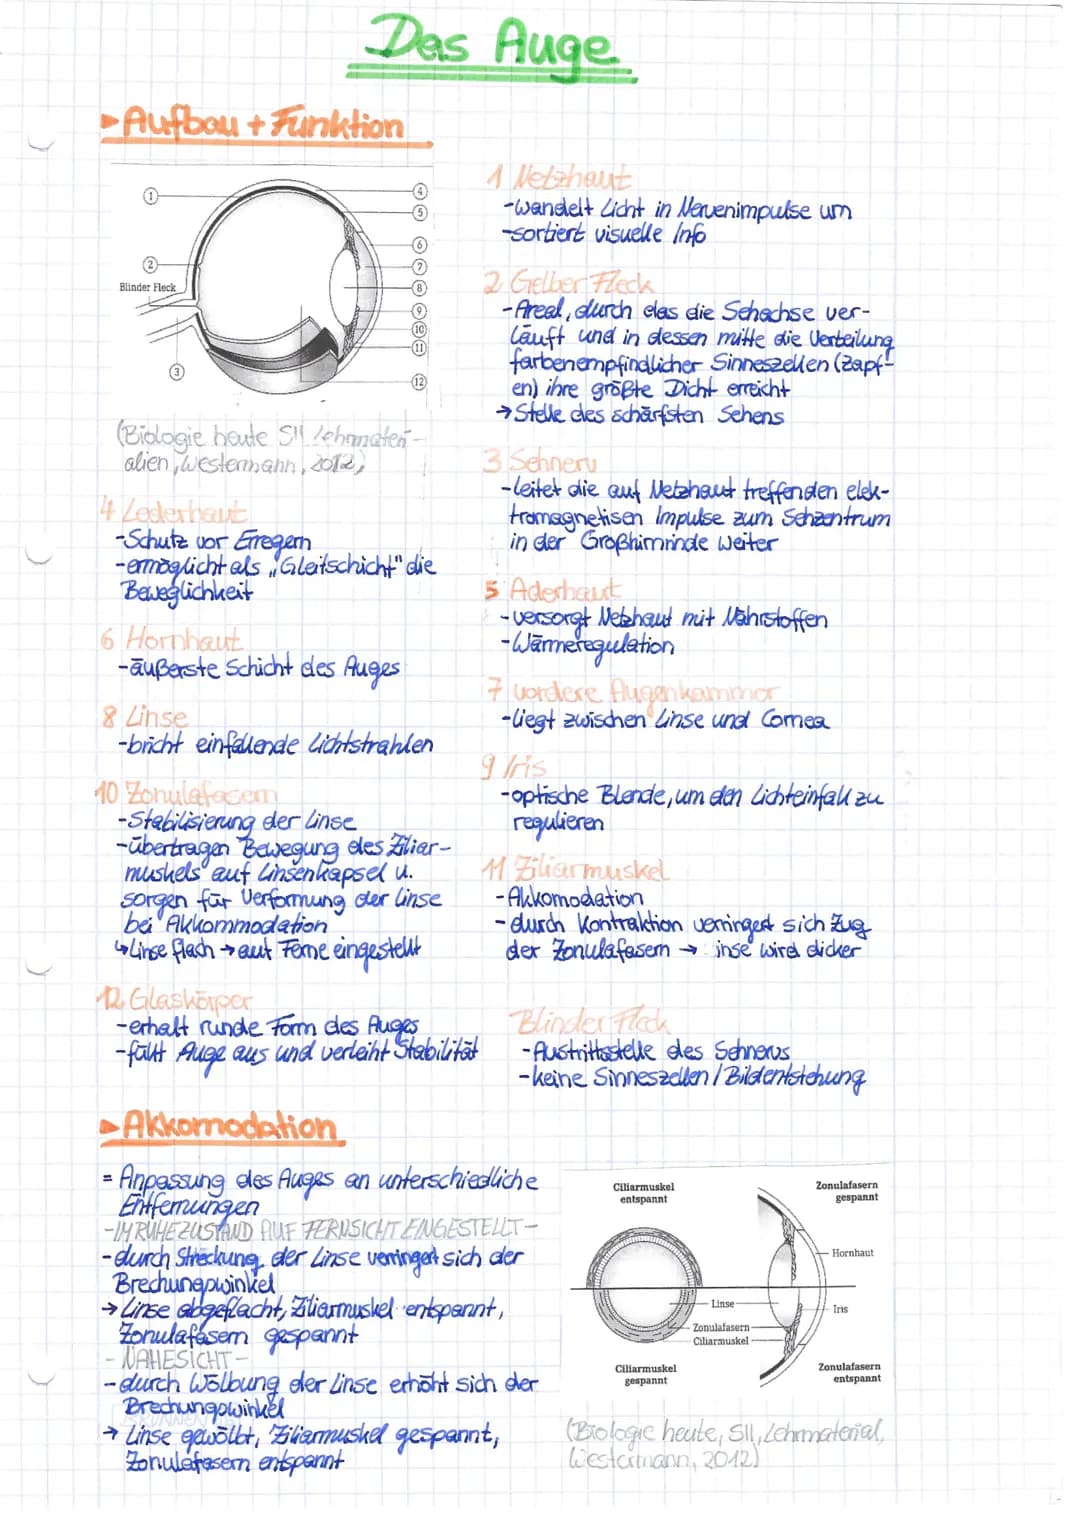 Das Auge
▸Aufbau + Funktion
1
2
Blinder Fleck
3
4
5
6
7
8
9
10
11
12
(Biologie heute SII Lehrmateri-
alien, Westermann, 2012)
1 Netzhaut
-wandelt Licht in Nervenimpulse um
-sortiert visuelle Info
2 Gelber Fleck
-Areal, durch das die Sehachse ver-
läuft und in dessen mitte die Verteilung
farbenempfindlicher Sinneszellen (Zapf-
en) ihre größte Dicht erreicht
→Stelle des schärfsten Sehens
3 Sehnerv
-leitet die auf Netzhaut treffenden elek-
tromagnetisen Impulse zum Sehzentrum
in der Großhirnrinde weiter
4 Lederhaut
-Schutz vor Erregern
-ermöglicht als „Gleitschicht" die
Beweglichkeit
5 Aderhaut
-versorgt Netzhaut mit Nährstoffen
-Wärmeregulation
6 Hornhaut
-äußerste Schicht des Auges
7 vordere Augenkammer
-liegt zwischen Linse und Cornea
8 Linse
-bricht einfallende Lichtstrahlen
9 Iris
-optische Blende, um den Lichteinfall zu
regulieren
10 Zonulafasern
-Stabilisierung der Linse
-übertragen Bewegung des Ziliar-
muskels auf Linsenkapsel u.
sorgen für Verformung der Linse
bei Akkommodation
↳Linse flach → auf Ferne eingestellt
11 Ziliarmuskel
-Akkomodation
-durch Kontraktion verringert sich Zug
der Zonulafasern → inse wird dicker
12 Glaskörper
-erhält runde Form des Auges
-füllt Auge aus und verleiht Stabilität
Blinder Fleck
-Austrittsstelle des Sehnervs
-keine Sinneszellen / Bildentstehung
▸Akkomodation
= Anpassung des Auges an unterschiedliche
Entfernungen
-IM RUHEZUSTAND AUF FERNSICHT EINGESTELLT-
-durch Streckung der Linse verringert sich der
Brechungswinkel
→ Linse abgeflacht, Ziliarmuskel entspannt,
Zonulafasern gespannt
- NAHESICHT -
-durch Wölbung der Linse erhöht sich der
Brechungswinkel
→ Linse gewölbt, Ziliarmuskel gespannt,
Zonulafasern entspannt
Ciliarmuskel
entspannt
Zonulafasern
gespannt
Hornhaut
Linse
Iris
Zonulafasern
Ciliarmuskel
Ciliarmuskel
gespannt
Zonulafasern
entspannt
(Biologie heute, SII, Lehrmaterial,
Westermann, 2012)